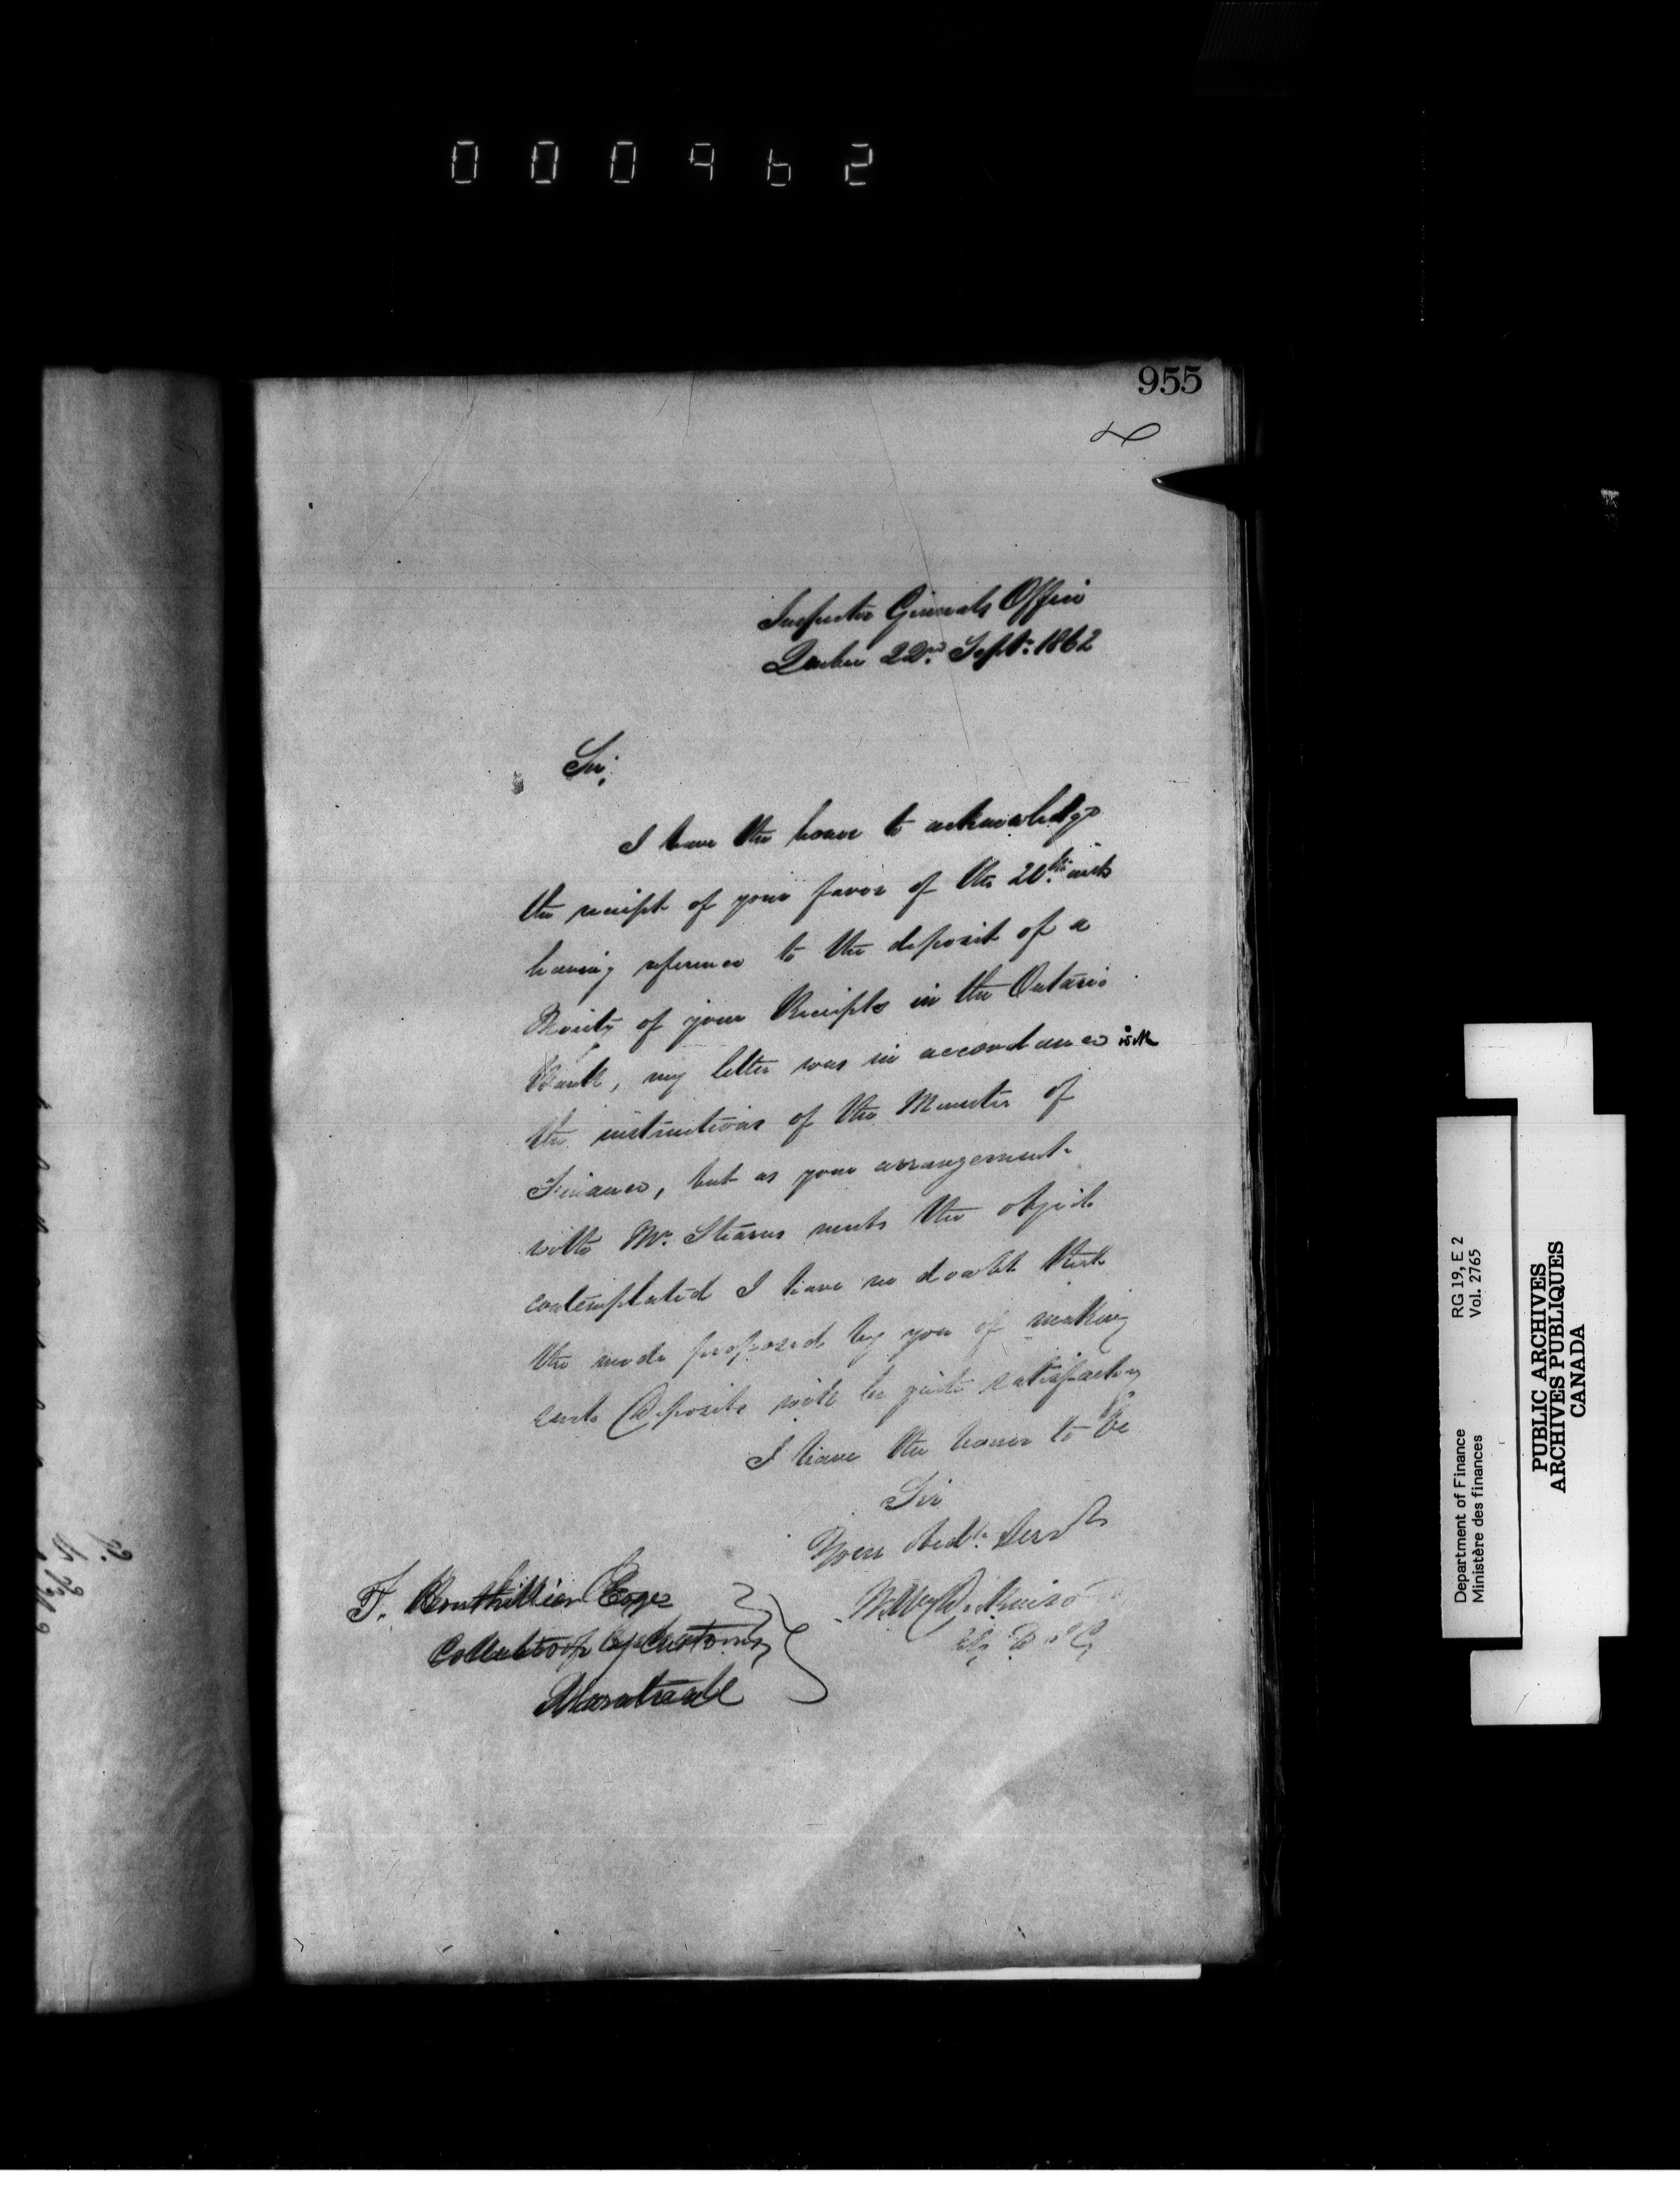 000962
955
Inspector Generals Office
Quebec 22nd. Sept: 1862
Sir,
I have the honor to acknowledge
the receipt of your favor of the 20th. inst
having reference to the deposit of a
Moiety of your Receipts in the Ontario
Bank, my letter was in accordance with
the instructions of the Minister of
Finance, but as your arrangement
with Mr. Stearns meets the object
contemplated I have no doubt that
the mode proposed by you of making
such Deposits will be quite satisfactory
I have the honor to be
Sir
Your Obedt. Servt
T. Bouthillier Esqre
Collector of Customs
Montreal
Department of Finance RG 19, E 2
Ministère des finances Vol. 2765
PUBLIC ARCHIVES
ARCHIVES PUBLIQUES
CANADA